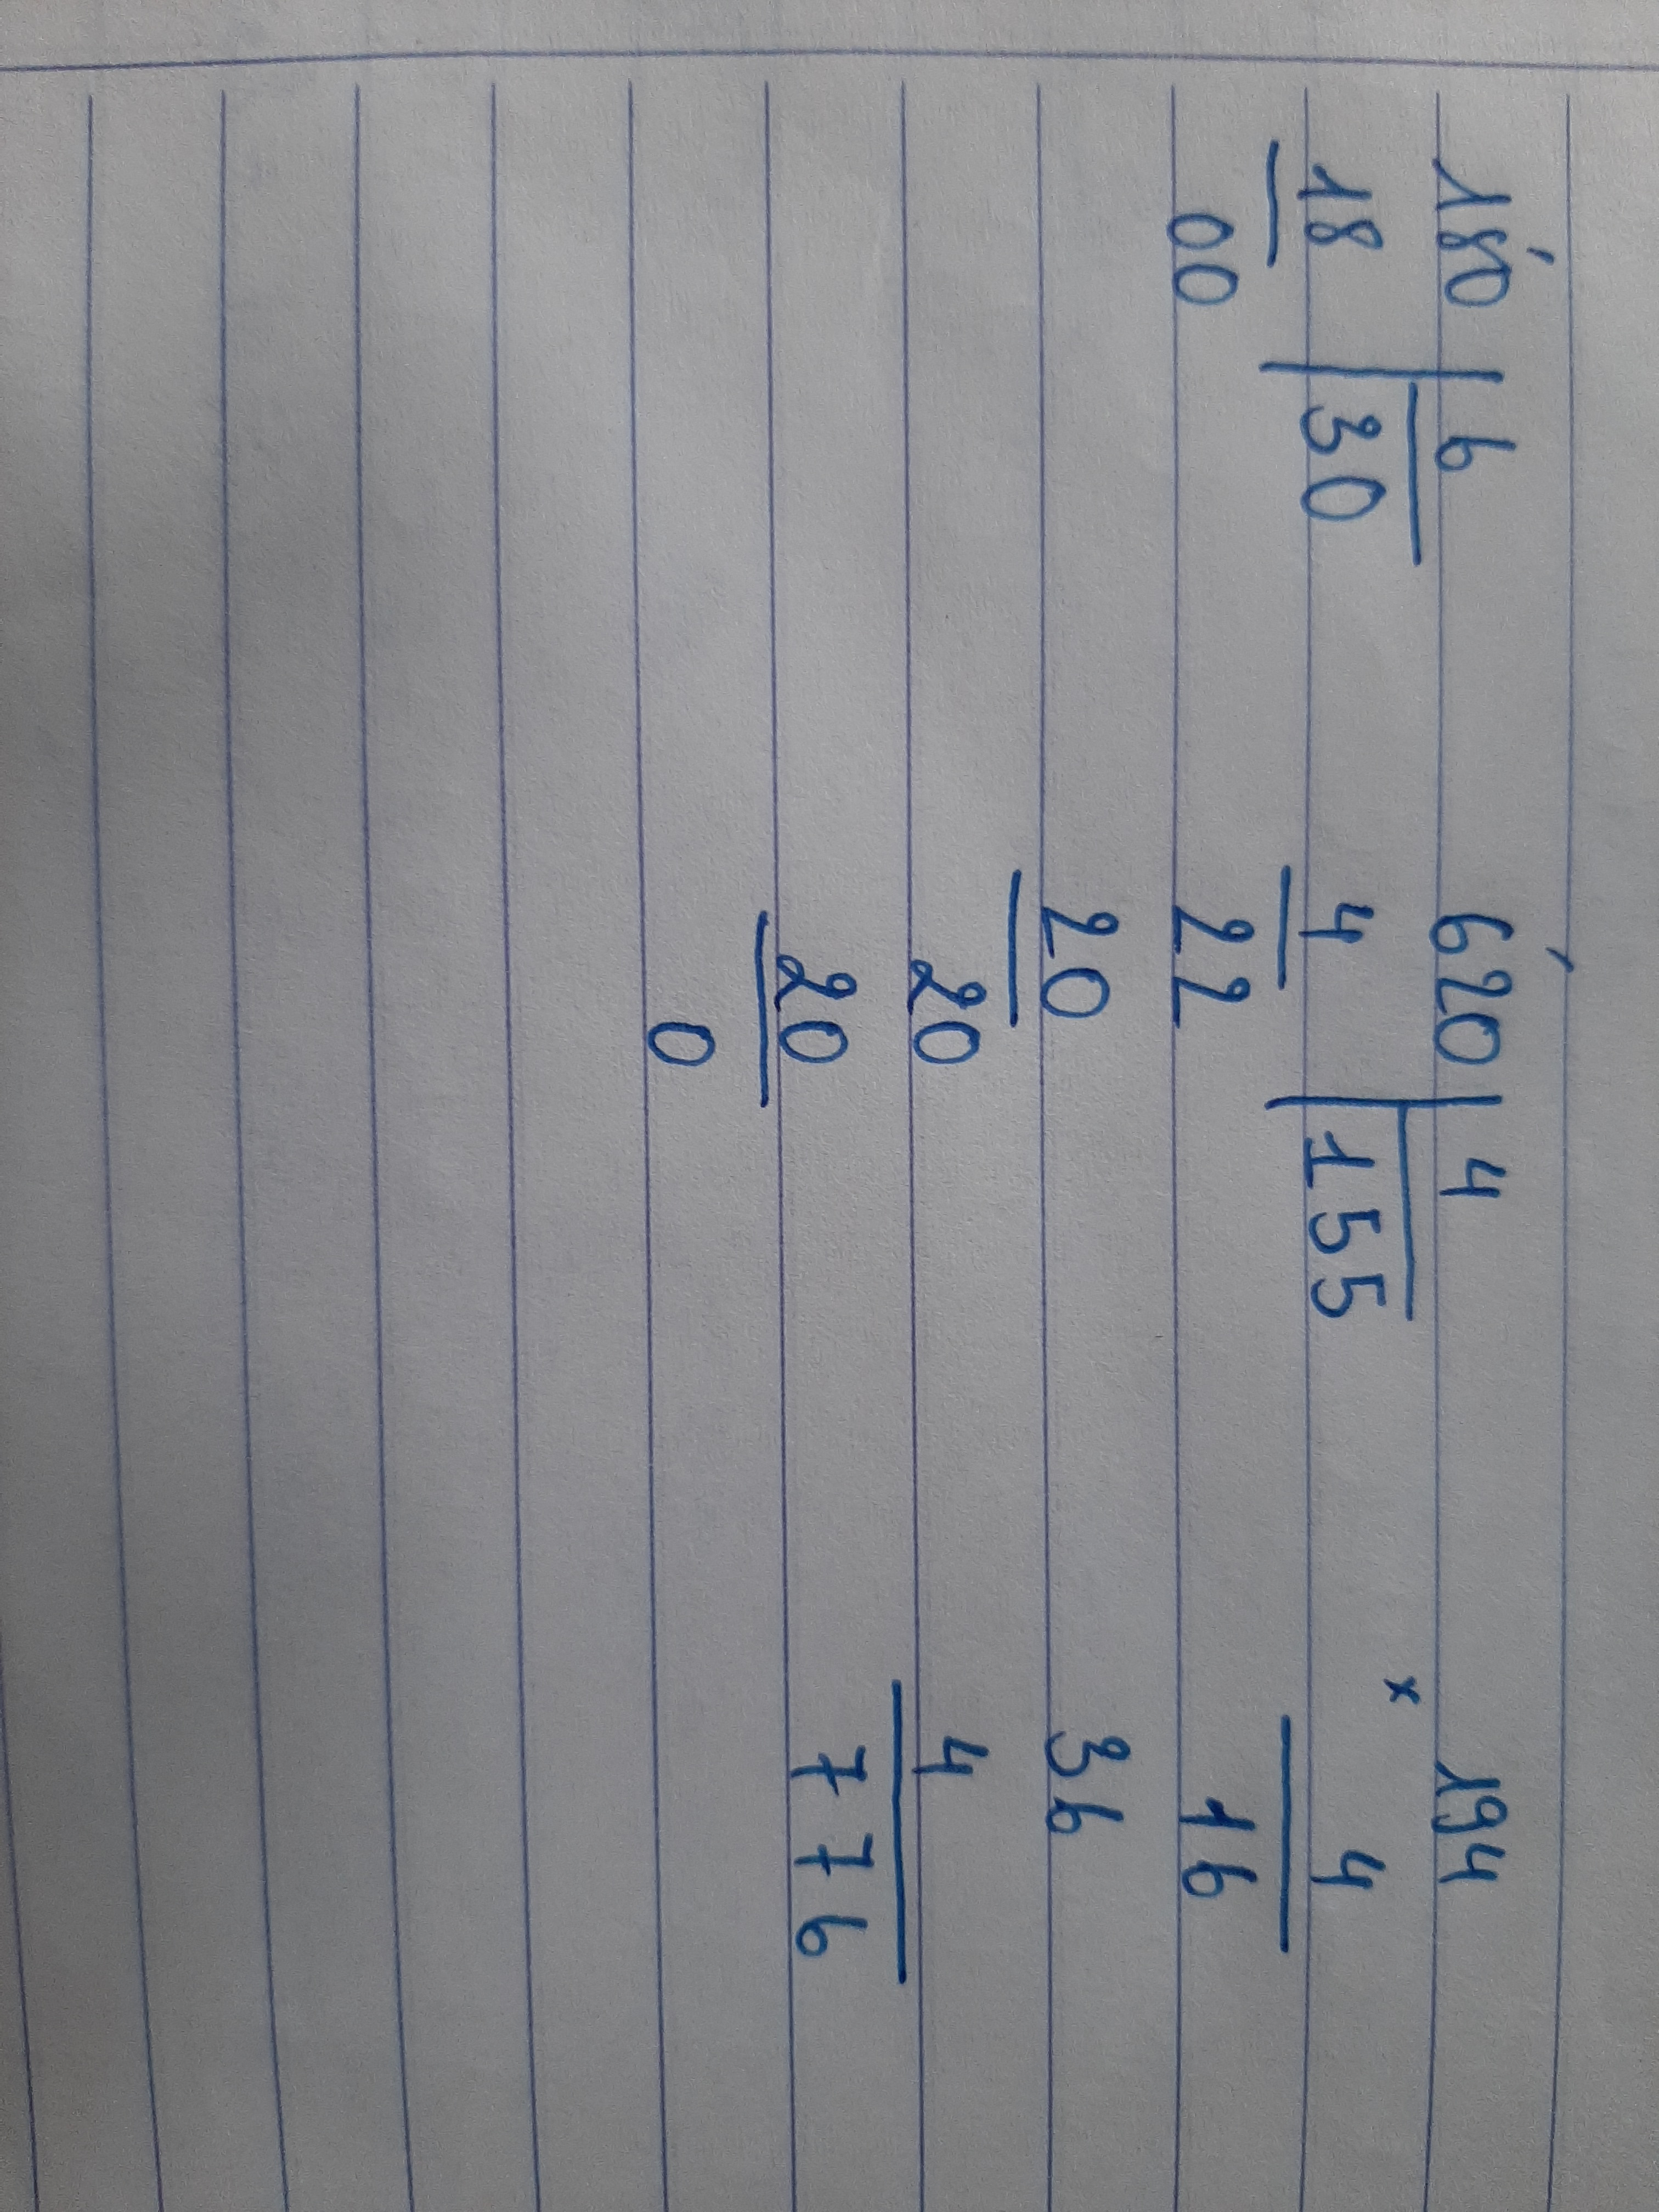 180 | 6
18 | 30
00
620 | 4
4 | 155
22
20
20
20
0
194
x 4
16
36
4
776